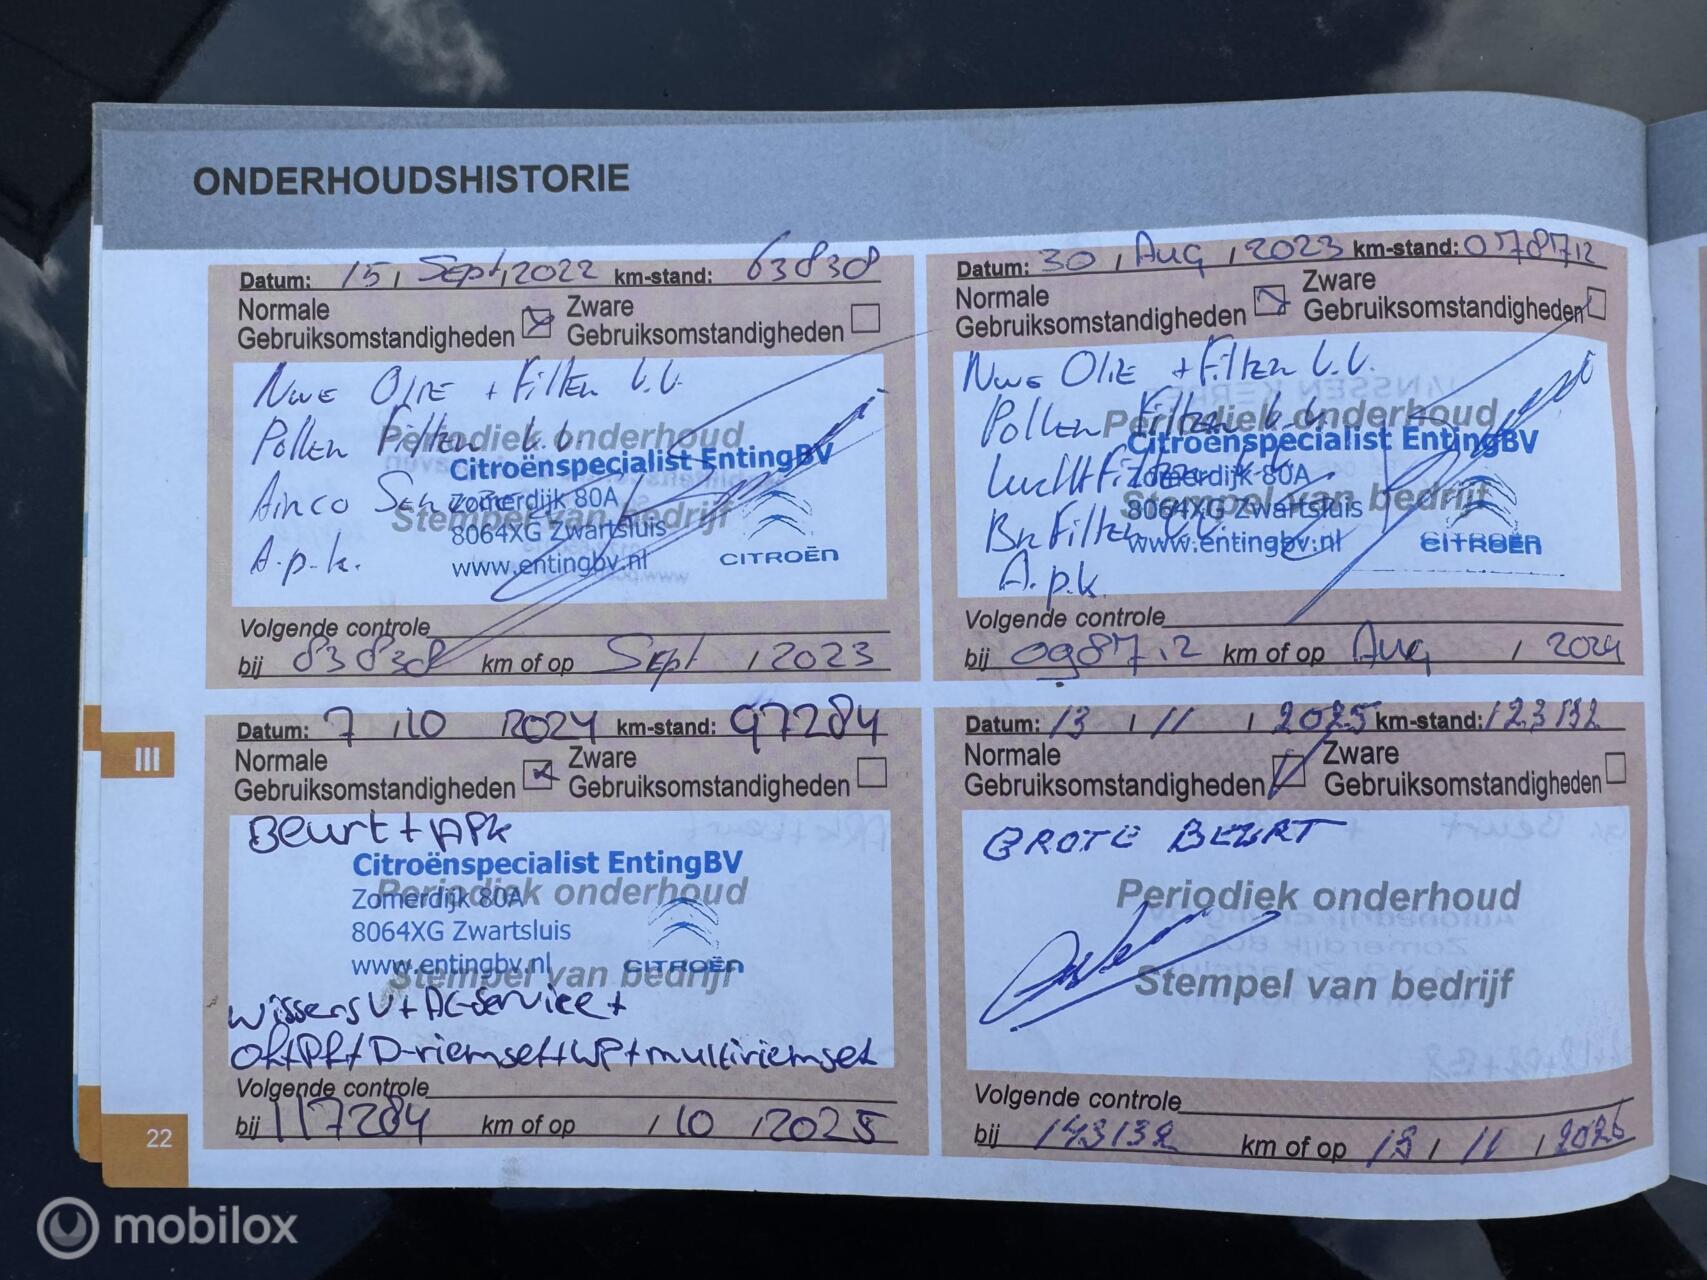 ONDERHOUDSHISTORIE
Datum: 15 / Sept / 2022 km-stand: 63838
Normale Gebruiksomstandigheden Zware Gebruiksomstandigheden
Nwe Olie + Filter V.V.
Pollen Filter V.V.
Periodiek onderhoud
Citroënspecialist EntingBV
Airco Service
Zomerdijk 80A
Stempel van bedrijf
8064XG Zwartsluis
A.p.k.
www.entingbv.nl
CITROËN
Volgende controle
bij 83838 km of op Sept / 2023
Datum: 30 / Aug / 2023 km-stand: 078712
Normale Gebruiksomstandigheden Zware Gebruiksomstandigheden
Nwe Olie + Filter V.V.
Pollen Filter V.V.
Periodiek onderhoud
Citroënspecialist EntingBV
Luchtfilter V.V.
Zomerdijk 80A
Stempel van bedrijf
8064XG Zwartsluis
Br Filter V.V.
www.entingbv.nl
CITROËN
A.p.k.
Volgende controle
bij 098712 km of op Aug / 2024
Datum: 7 / 10 / 2024 km-stand: 97284
Normale Gebruiksomstandigheden Zware Gebruiksomstandigheden
Beurt + APK
Citroënspecialist EntingBV
Periodiek onderhoud
Zomerdijk 80A
8064XG Zwartsluis
www.entingbv.nl
Stempel van bedrijf
CITROËN
Wissers V + AC-service +
Of+Pf+D-riemset+WP+multiriemset
Volgende controle
bij 117284 km of op / 10 / 2025
Datum: 13 / 11 / 2025 km-stand: 123132
Normale Gebruiksomstandigheden Zware Gebruiksomstandigheden
GROTE BEURT
Periodiek onderhoud
Stempel van bedrijf
Volgende controle
bij 143132 km of op 13 / 11 / 2026
III
22
mobilox